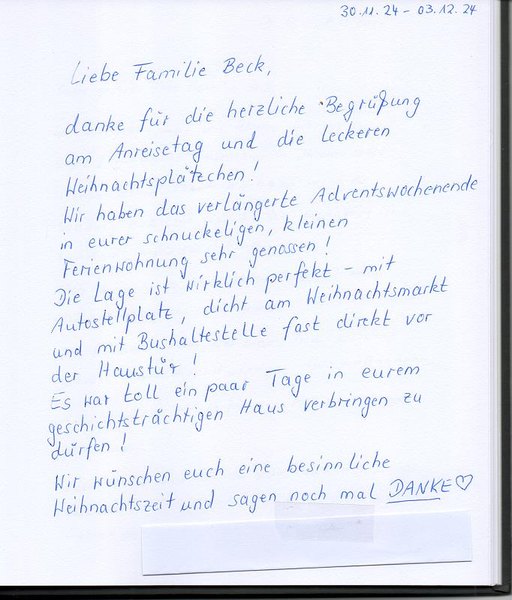 30.11.24 - 03.12.24
Liebe Familie Beck,
danke für die herzliche Begrüßung
am Anreisetag und die leckeren
Weihnachtsplätzchen!
Wir haben das verlängerte Adventswochenende
in eurer schnuckeligen, kleinen
Ferienwohnung sehr genossen!
Die Lage ist wirklich perfekt - mit
Autostellplatz, dicht am Weihnachtsmarkt
und mit Bushaltestelle fast direkt vor
der Haustür!
Es war toll ein paar Tage in eurem
geschichtsträchtigen Haus verbringen zu
dürfen!
Wir wünschen euch eine besinnliche
Weihnachtszeit und sagen noch mal DANKE♡